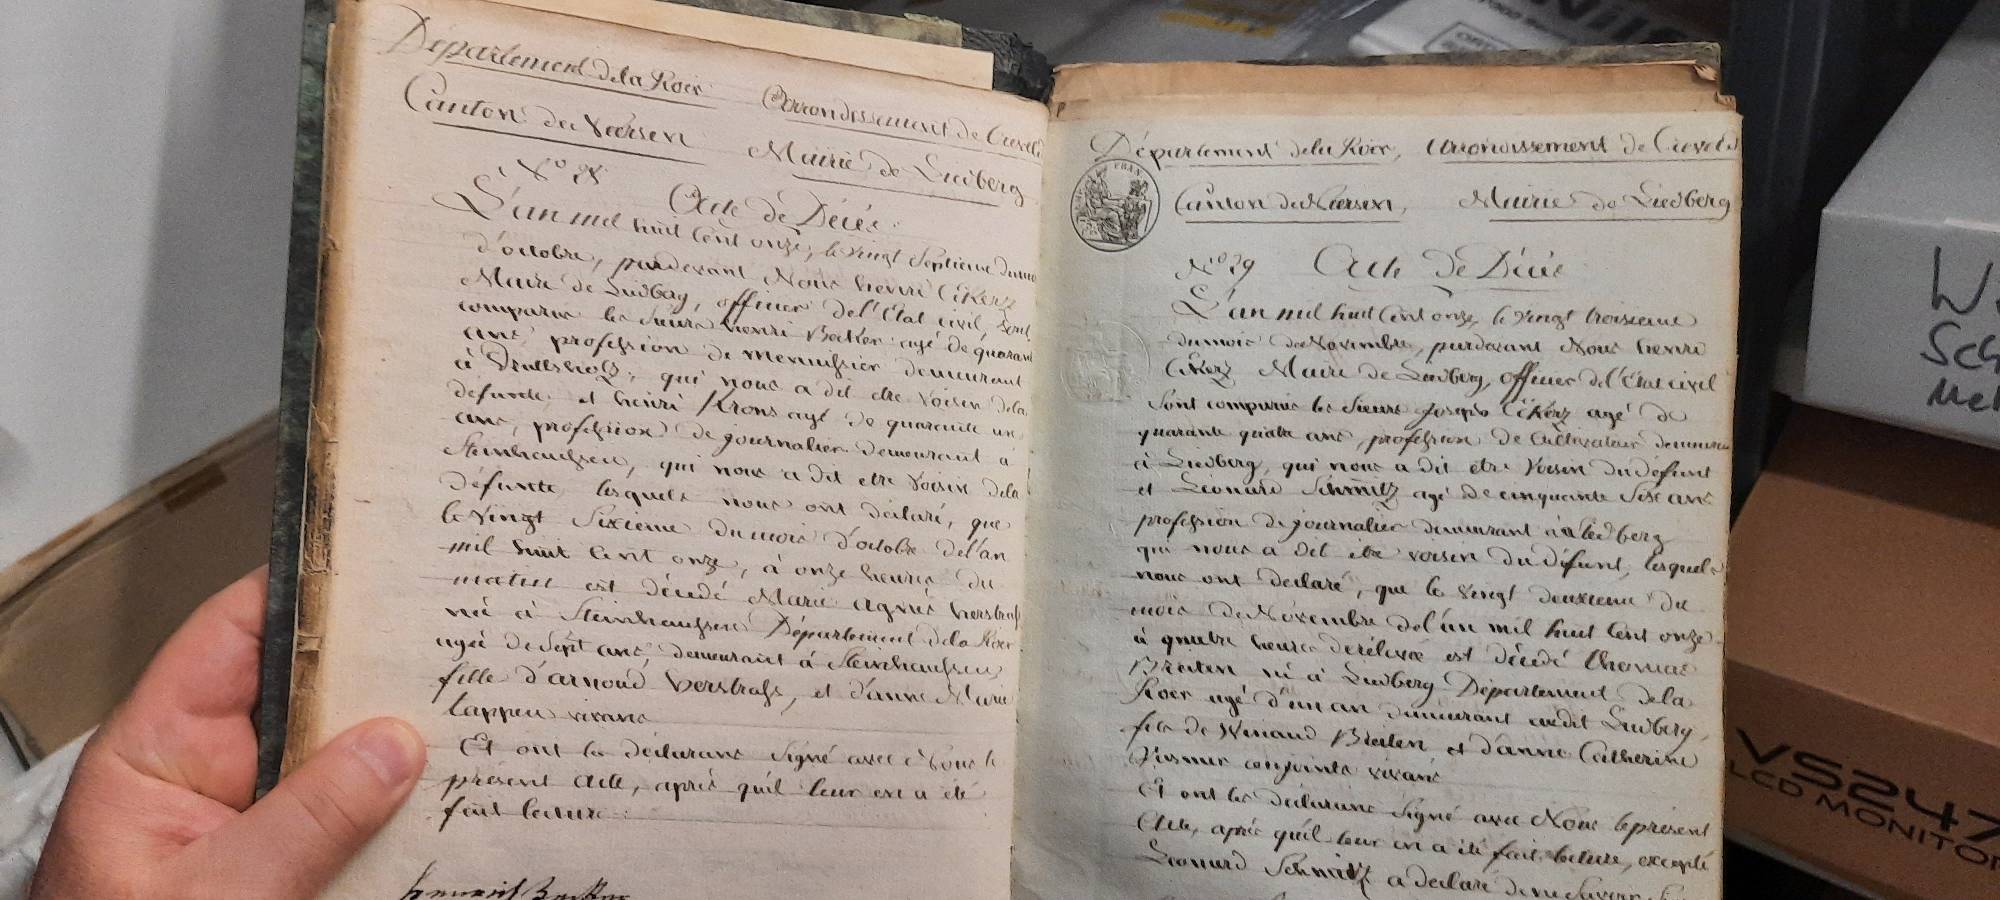 Département de la Roer Arrondissement de Creveld
Canton de Neersen Mairie de Liedberg
N.° 28
Acte de Décés.
L'an mil huit Cent onze, le vingt Septieme du mois
d'octobre, pardevant Nous henri Cikerz
Maire de Liedberg, officier de l'État civil, sont
comparus les Sieurs henri Becker agé de quarante
ans, profession de menuissier demeurant
à qui nous a dit etre Voisin de la
defunte, et henri Krons agé de quarente un
ans, profession de journalier demeurant à
Steinhaussen, qui nous a dit etre Voisin de la
défunte, lesquels nous ont déclaré, que
le Vingt Sixieme du mois d'octobre de l'an
mil huit Cent onze, à onze heures du
matin est décédé Marie agnés
née à Steinhaussen Département de la Roer
agée de Sept ans, demeurant à Steinhaussen
fille d'arnoud Verstrass, et d'anne Marie
vivans
Et ont les déclarans Signé avec Nous le
présent Acte, aprés qu'il leur en a été
fait lecture.
Département de la Roer, Arrondissement de Creveld
Canton de Neersen, Mairie de Liedberg
N.° 29 Acte de Décés
L'an mil huit Cent onze, le vingt troisieme
du mois de Novembre, pardevant Nous henri
Cikerz Maire de Liedberg, officier de l'État civil
Sont comparus les Sieurs Joseph Cikerz agé de
quarante quatre ans, profession de Cultivateur demeurant
à Liedberg, qui nous a dit etre Voisin du défunt
et Léonard Schmitz agé de cinquante Six ans
profession de journalier demeurant à Liedberg
qui nous a dit etre voisin du défunt, lesquels
nous ont declaré, que le vingt deuxieme du
mois de Novembre de l'an mil huit Cent onze
à quatre heures de rélevée est décédé thomas
Breiten né à Liedberg Département de la
Roer agé d'un an demeurant audit Liedberg,
fils de Winand Breiten et d'anne Catherine
conjoints vivans
Et ont les déclarans Signé avec Nous le présent
Acte, aprés qu'il leur en a été fait lecture, excepté
Léonard Schmitz a declaré de ne Savoir
VS247
LCD MONITOR